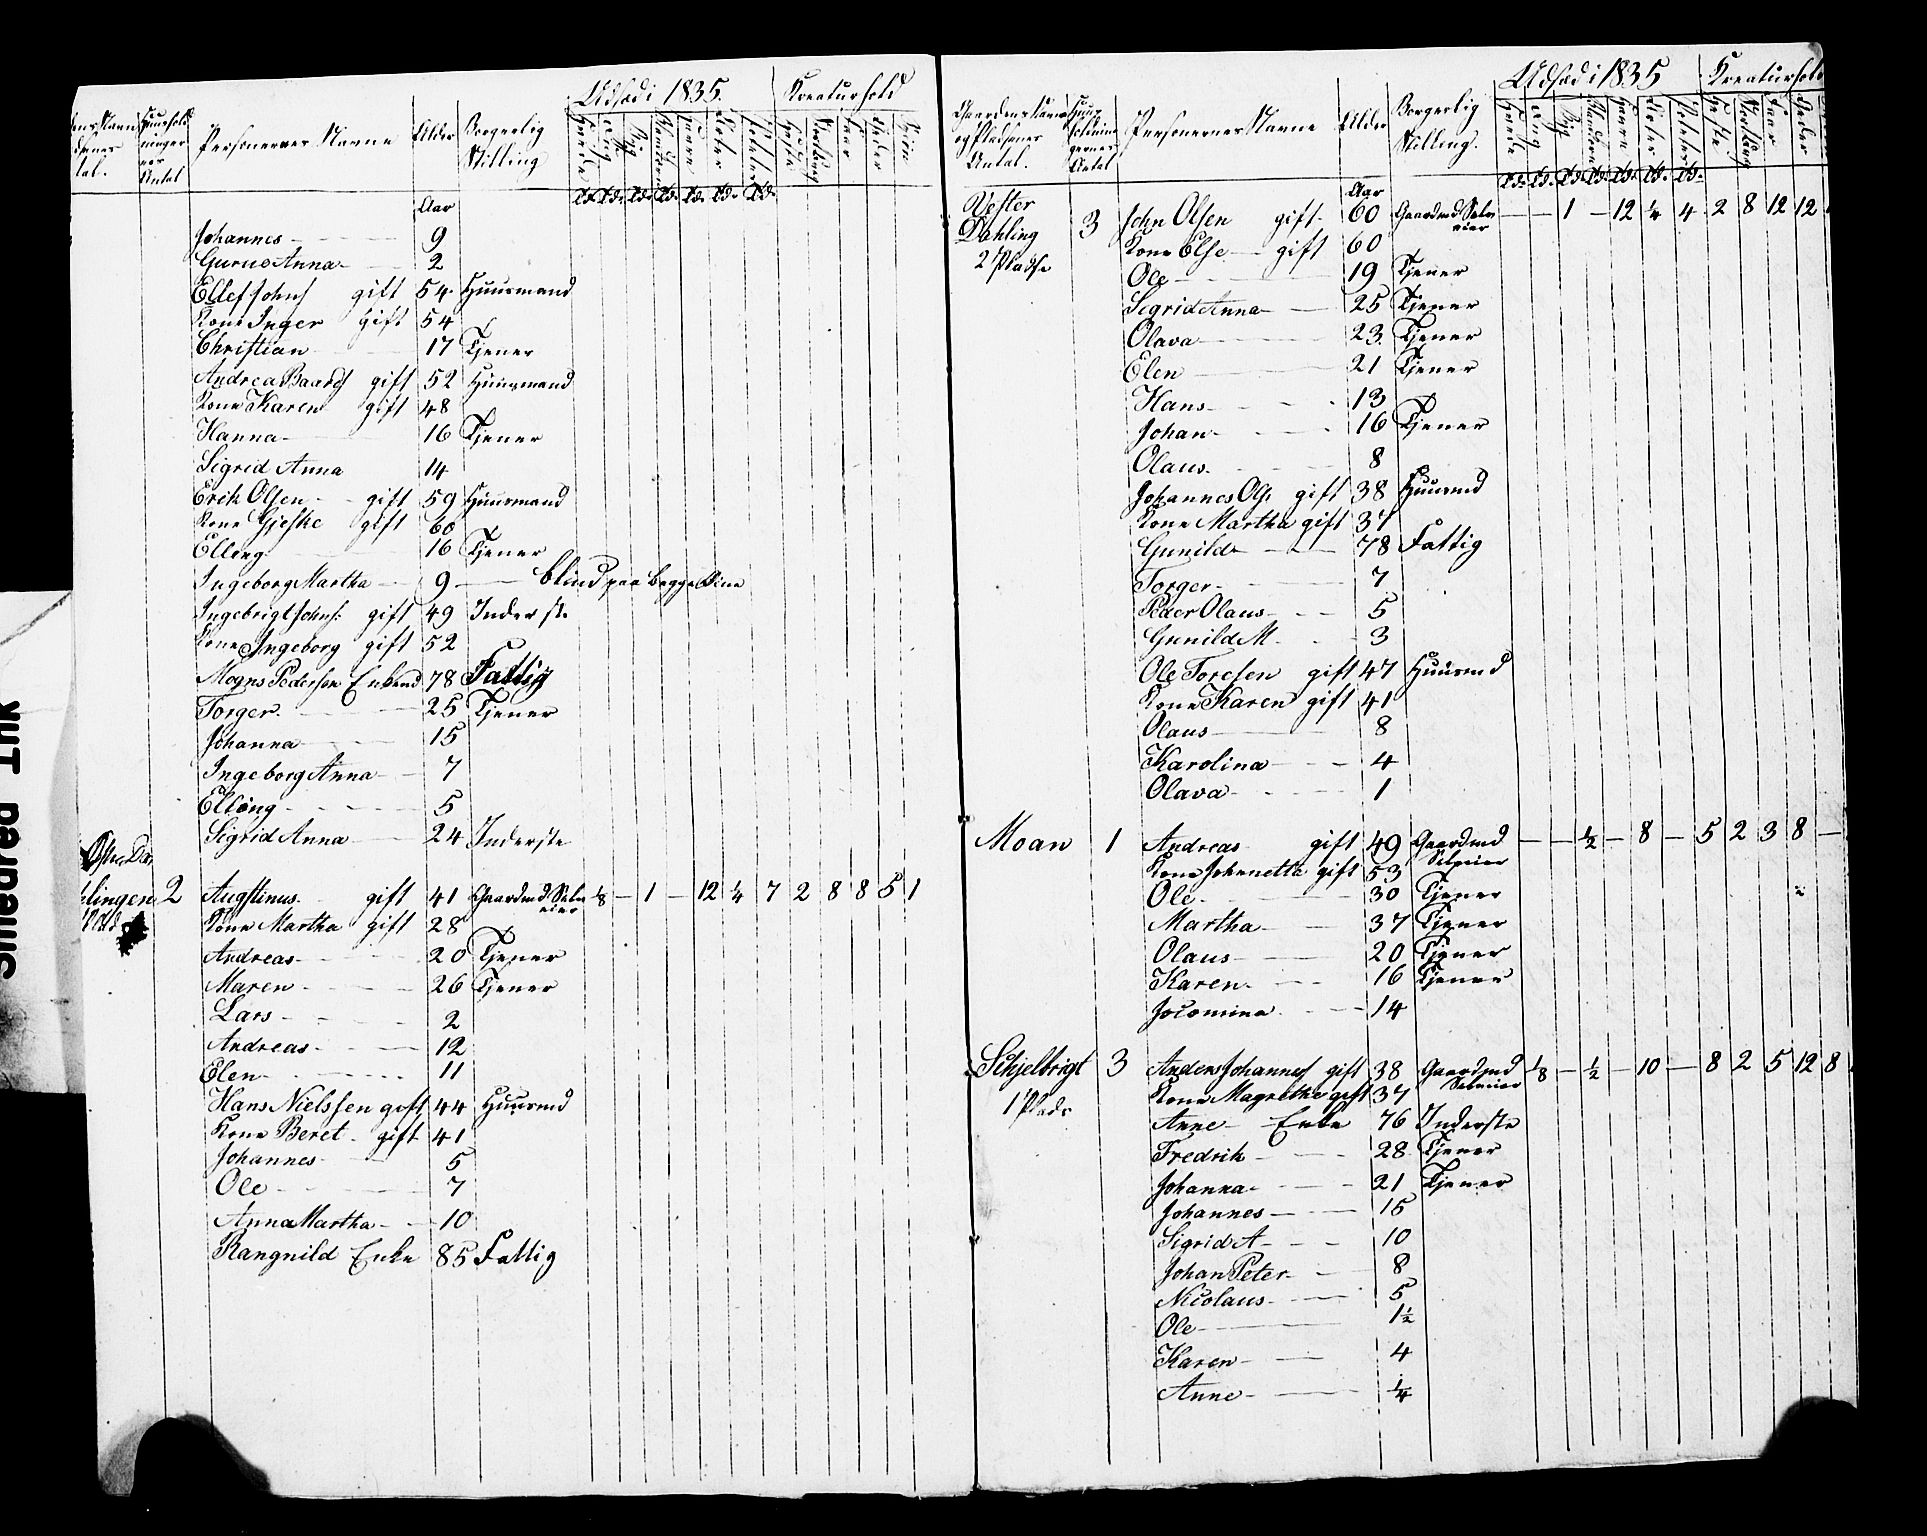 Udsæd i 1835. Kreaturhold
Personernes Navne Alder Borgerlig Stilling
Hvede Rug Byg Blandkorn Havre Erter Poteter Heste Storfæ Faar Gjeder Sviin
Td. Td. Td. Td. Td. Td. Td.
Aar
Johannes 9
Guruo Anna 2
Ellef Johns gift 54 Huusmand
Kone Inger gift 54
Christian 17 Tjener
Andrea Baards gift 52 Huusmand
Kone Karen gift 48
Hanna 16 Tjener
Sigrid Anna 14
Erik Olsen gift 59 Huusmand
Kone Gjeske gift 60
Elling 16 Tjener
Ingeborg Martha 9 blind paa begge Øine
Ingebrigt Johns: gift 49 Inderste
Kone Ingeborg gift 52
Mogns Pedersen Enkemd 78 Fattig
Torger 25 Tjener
Johanna 15
Ingeborg Anna 7
Elling 5
Sigrid Anna 24 Inderste
Øster Da
hlingen 2 Augstinus gift 41 Gaardmd Selv
eier 1/8 — 1 — 12 1/4 7 2 8 8 5 1
Kone Martha gift 28
Andreas 20 Tjener
Maren 26 Tjener
Lars 2
Andreas 12
Elen 11
Hans Nielssen gift 44 Huusmd
Kone Beret gift 41
Johannes 5
Ole 7
Anna Martha 10
Rangnild Enke 85 Fattig
Udsæd i 1835 Kreaturhold
Gaardens Navn og Pladsenes Antal. Huusholdningernes Antal Personernes Navne Alder Borgerlig Stilling.
Hvede Rug Byg Blandkorn Havre Erter Poteter Heste Storfæ Faar Gjeder
Td. Td. Td. Td. Td. Td. Td.
Aar
Vester
Dahling 3 John Olsen gift 60 Gaardmd Selv
eier — — 1 — 12 1/4 4 2 8 12 12
2 Pladse Kone Else gift 60
Ole 19 Tjener
Sigrid Anna 25 Tjener
Olava 23 Tjener
Elen 21 Tjener
Hans 13
Johan 16 Tjener
Olaus 8
Johannes Ols: gift 38 Huusmd
Kone Martha gift 37
Gunild 78 Fattig
Torger 7
Peder Olaus 5
Gunild M. 3
Ole Toresen gift 47 Huusmd
Kone Karen gift 41
Olaus 8
Karolina 4
Olava 1
Moan 1 Andreas gift 49 Gaardmd
Selveier — — 1/2 — 8 — 5 2 3 8 —
Kone Johanetta gift 53
Ole 30 Tjener
Martha 37 Tjener
Olaus 20 Tjener
Karen 16 Tjener
Jocomina 14
Schjelbrigt 3 Anders Johannes gift 38 Gaardmd
Selveier 1/8 — 1/2 — 10 — 8 2 5 12 8
1 Plads Kone Magrethe gift 37
Anne Enke 76 Inderste
Fredrik 28 Tjener
Johanna 21 Tjener
Johannes 15
Sigrid A 10
Johan Peter 8
Nicolaus 5
Ole 1 1/2
Karen 4
Anne 1/4
Smedred Ink